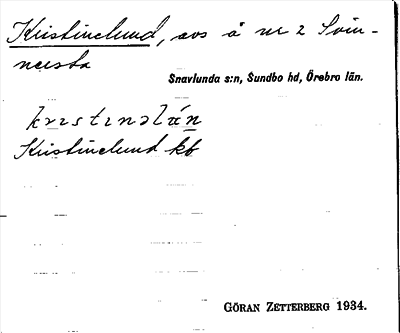 Kristinelund, avs å nr 2 Svin-
nersta
Snavlunda s:n, Sundbo hd, Örebro län.
krɪstɪnəlán
Kristinelund kb
GÖRAN ZETTERBERG 1934.